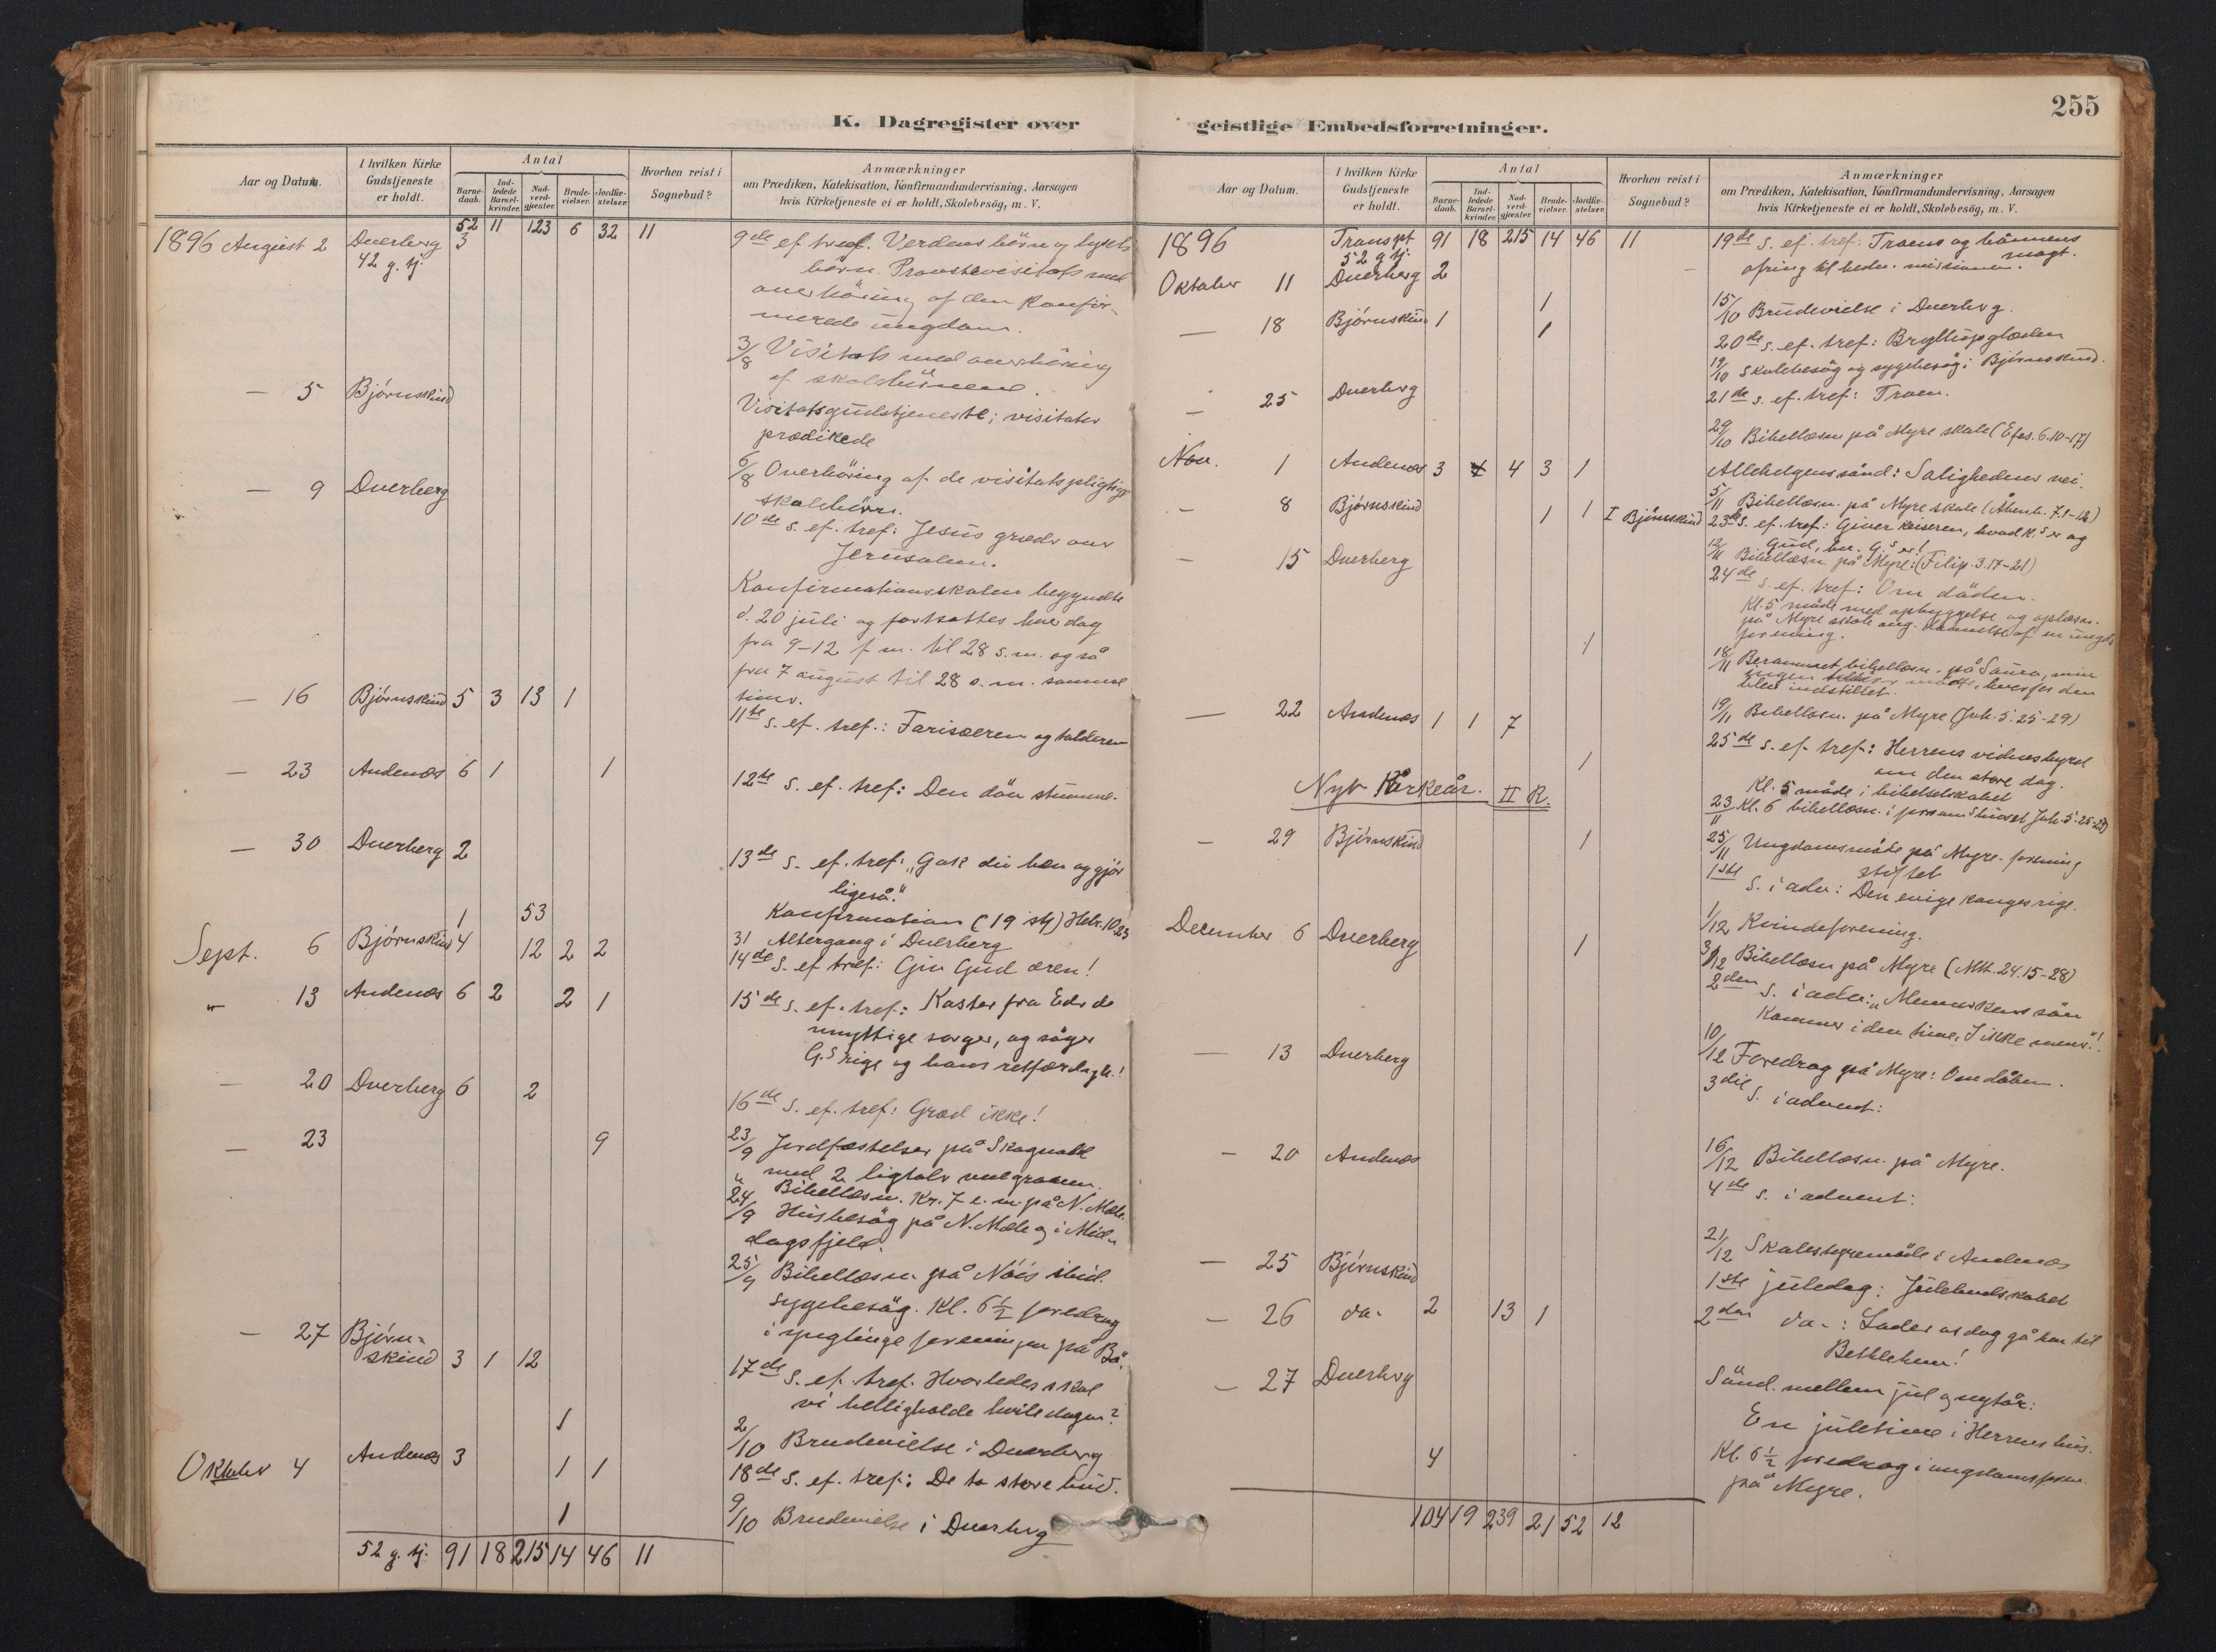 255
K. Dagregister over
Aar og Datum.
I hvilken Kirke Gudstjeneste er holdt.
Antal
Barne-daab.
Ind-ledede Barsel-kvinder.
Nad-verd-gjæster.
Brude-vielser.
Jordfæ-stelser.
Hvorhen reist i Sognebud?
Anmærkninger
om Prædiken, Katekisation, Konfirmandundervisning, Aarsagen
hvis Kirketjeneste ei er holdt, Skolebesøg, m. V.
52 11 123 6 32 11
1896 August 2 Dverberg 3 9de s. ef. tref. Verdens börn og lysets
42 g. tj. börn. Provstevisitats med
overhöring af den konfir-
merede ungdom.
3/8 Visitats med overhöring
af skolebörnene.
— 5 Bjørnskind Visitatsgudstjeneste; visitator
prædikede
6/8 Overhöring af de visitatspligtige
— 9 Dverberg skolebörn.
10de s. ef. tref: Jesus græder over
Jerusalem.
Konfirmationsskolen begyndte
d. 20 juli og fortsattes hver dag
fra 9-12 f m. til 28 s. m. også
fra 7 august til 28 s. m. samme
timer.
— 16 Bjørnskind 5 3 13 1 11te s. ef. tref.: Farisæeren og tolderen
— 23 Andenæs 6 1 1 12te s. ef. tref: Den döv stumme.
— 30 Dverberg 2 13de s. ef. tref: "Gak du hen og gjör
ligeså."
1 53 Konfirmation (19 stk) Hebr. 10.23
31 Altergang i Dverberg
Sept. 6 Bjørnskind 4 12 2 2 14de s. ef tref: Giv Gud æren!
" 13 Andenæs 6 2 2 1 15de s. ef. tref: Kaster fra Eder de
unyttige sorger, og söger
G.s rige og hans retfærdigh.!
— 20 Dverberg 6 2 16de s. ef. tref: Græd ikke!
— 23 9 23/9 Jordfæstelser på Skogvoll
med 2 ligtaler ved graven.
" Bibellæsn. Kl. 7 e. m. på N. Mæle.
24/9 Husbesög på N. Mæle og i Mid-
dagsfjeld.
25/9 Bibellæsn på Nöis ibid.
sygebesög. Kl. 6½ foredrag
i ynglingeforeningen på Bö.
— 27 Bjørn-
skind 3 1 12 17de s. ef. tref. Hvorledes skal
vi helligholde hviledagen?
1 2/10 Brudevielse i Dverberg
Oktober 4 Andenæs 3 1 1 18de s. ef. tref: De to store bud.
1 9/10 Brudevielse i Dverberg
52 g. tj. 91 18 215 14 46 11
geistlige Embedsforretninger.
Aar og Datum.
I hvilken Kirke Gudstjeneste er holdt.
Antal
Barne-daab.
Ind-ledede Barsel-kvinder.
Nad-verd-gjæster.
Brude-vielser.
Jordfæ-stelser.
Hvorhen reist i Sognebud?
Anmærkninger
om Prædiken, Katekisation, Konfirmandundervisning, Aarsagen
hvis Kirketjeneste ei er holdt, Skolebesög, m. V.
1896 Transpt 91 18 215 14 46 11
52 g tj.
Oktober 11 Dverberg 2 19de s. ef. tref: Troens og bönnens magt.
ofring til hedn. missionen.
1 15/10 Brudevielse i Dverberg.
— 18 Bjørnskind 1 1 20de s. ef. tref: Bryllupsglæden
19/10 Skolebesög og sygebesög i Bjørnskind.
— 25 Dverberg 21de s. ef. tref: Troen.
29/10 Bibellæsn på Myre skole (Efes. 6.10-17)
Nov. 1 Andenæs 3 4 3 1 Allehelgenssönd: Salighedens vei.
5/11 Bibellæsn. på Myre skole (Åbenb. 7.1-12)
— 8 Bjørnskind 1 1 I Bjørnskind 23de s. ef. tref: Giver keiseren, hvad K.s er og
Gud, hv. G.s er!
12/11 Bibellæsn på Myre: (Filip. 3.17-21)
— 15 Dverberg 24de s. ef. tref: Om döden.
Kl. 5 möde med opbyggelse og oplæsn.
på Myre skole ang. dannelse af en ungd.
forening.
1 18/11 Berammet bibellæsn. på Saura, men
ingen mödte, hvorfor den
blev indstillet.
19/11 Bibellæsn. på Myre (Joh. 5. 25-29)
— 22 Andenæs 1 1 7 25de s. ef tref: Herrens vidnesbyrd
1 om den store dag.
Kl. 5 möde i bibelselskabet
23/11 Kl. 6 bibellæsn. i forsaml.huset Joh. 5. 25-29
Nyt Kirkeår. II R.
25/11 Ungdomsmöde på Myre. forening
stiftet
— 29 Bjørnskind 1 1ste s. i adv: Den evige konges rige.
1/12 Kvindeforening.
3/12 Bibellæsn på Myre (Mth. 24. 15-28)
December 6 Dverberg 1 2den s. i adv: "Menneskens sön
kommer i den time, I ikke mener"!
10/12 Foredrag på Myre: Om dåben.
— 13 Dverberg 3die s. i advent:
16/12 Bibellæsn. på Myre.
— 20 Andenæs 4de s. i advent:
21/12 Skolestyremöde i Andenæs
— 25 Bjørnskind 1ste juledag: Julebudskabet
— 26 do- 2 13 1 2den do-: Lader os dog gå hen til
Bethlehem!
— 27 Dverberg Sönd. mellem jul og nytår:
En juletime i Herrens hus.
4 Kl. 6½ foredrag i ungdomsforen.
på Myre.
104 19 239 21 52 12